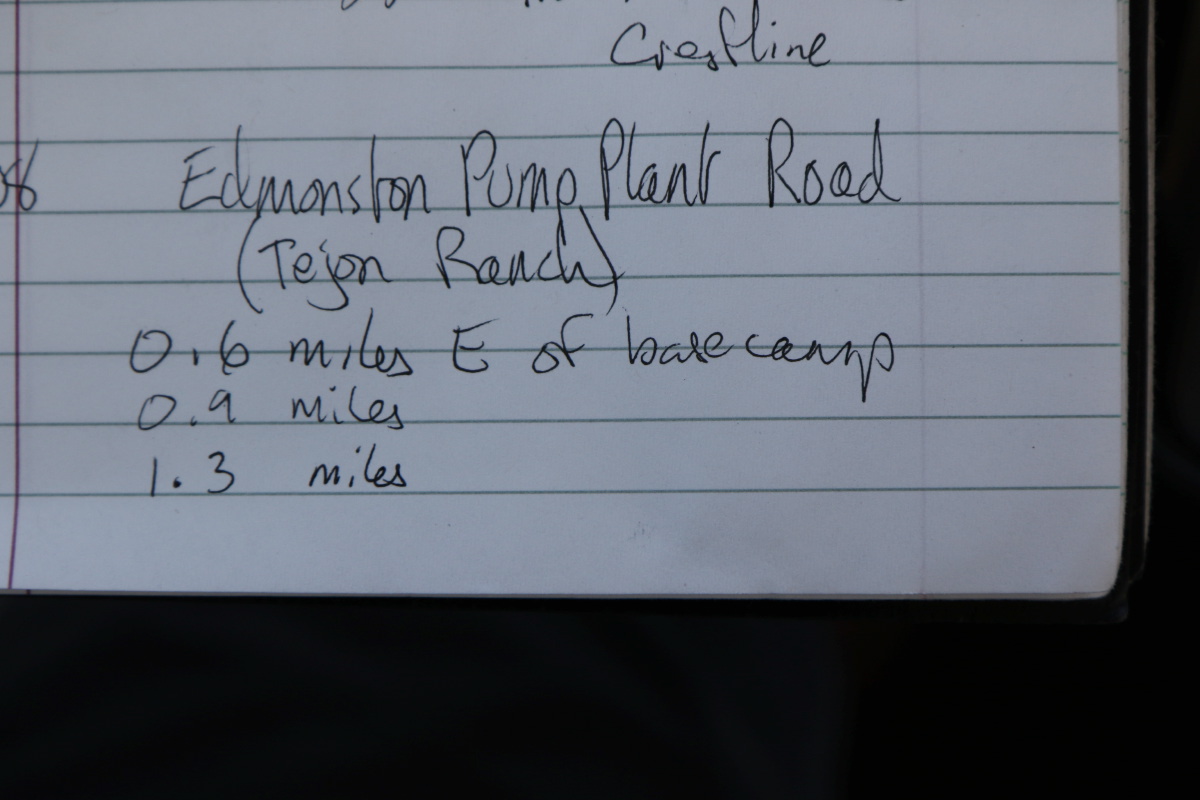 Crestline
08 Edmonston Pump Plant Road
(Tejon Ranch)
0.6 miles E of basecamp
0.9 miles
1.3 miles